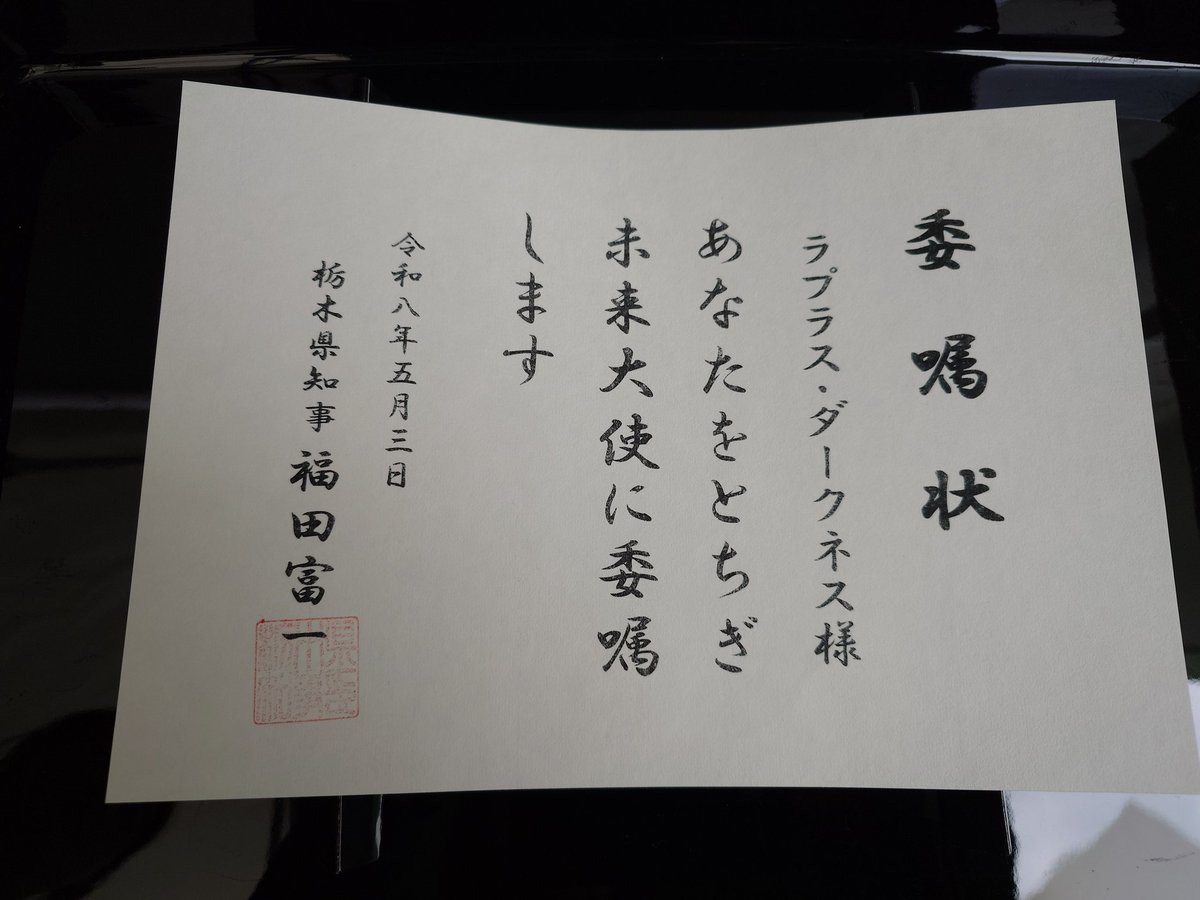 委嘱状
ラプラス・ダークネス様
あなたをとちぎ
未来大使に委嘱
します
令和八年五月三日
栃木県知事 福田富一